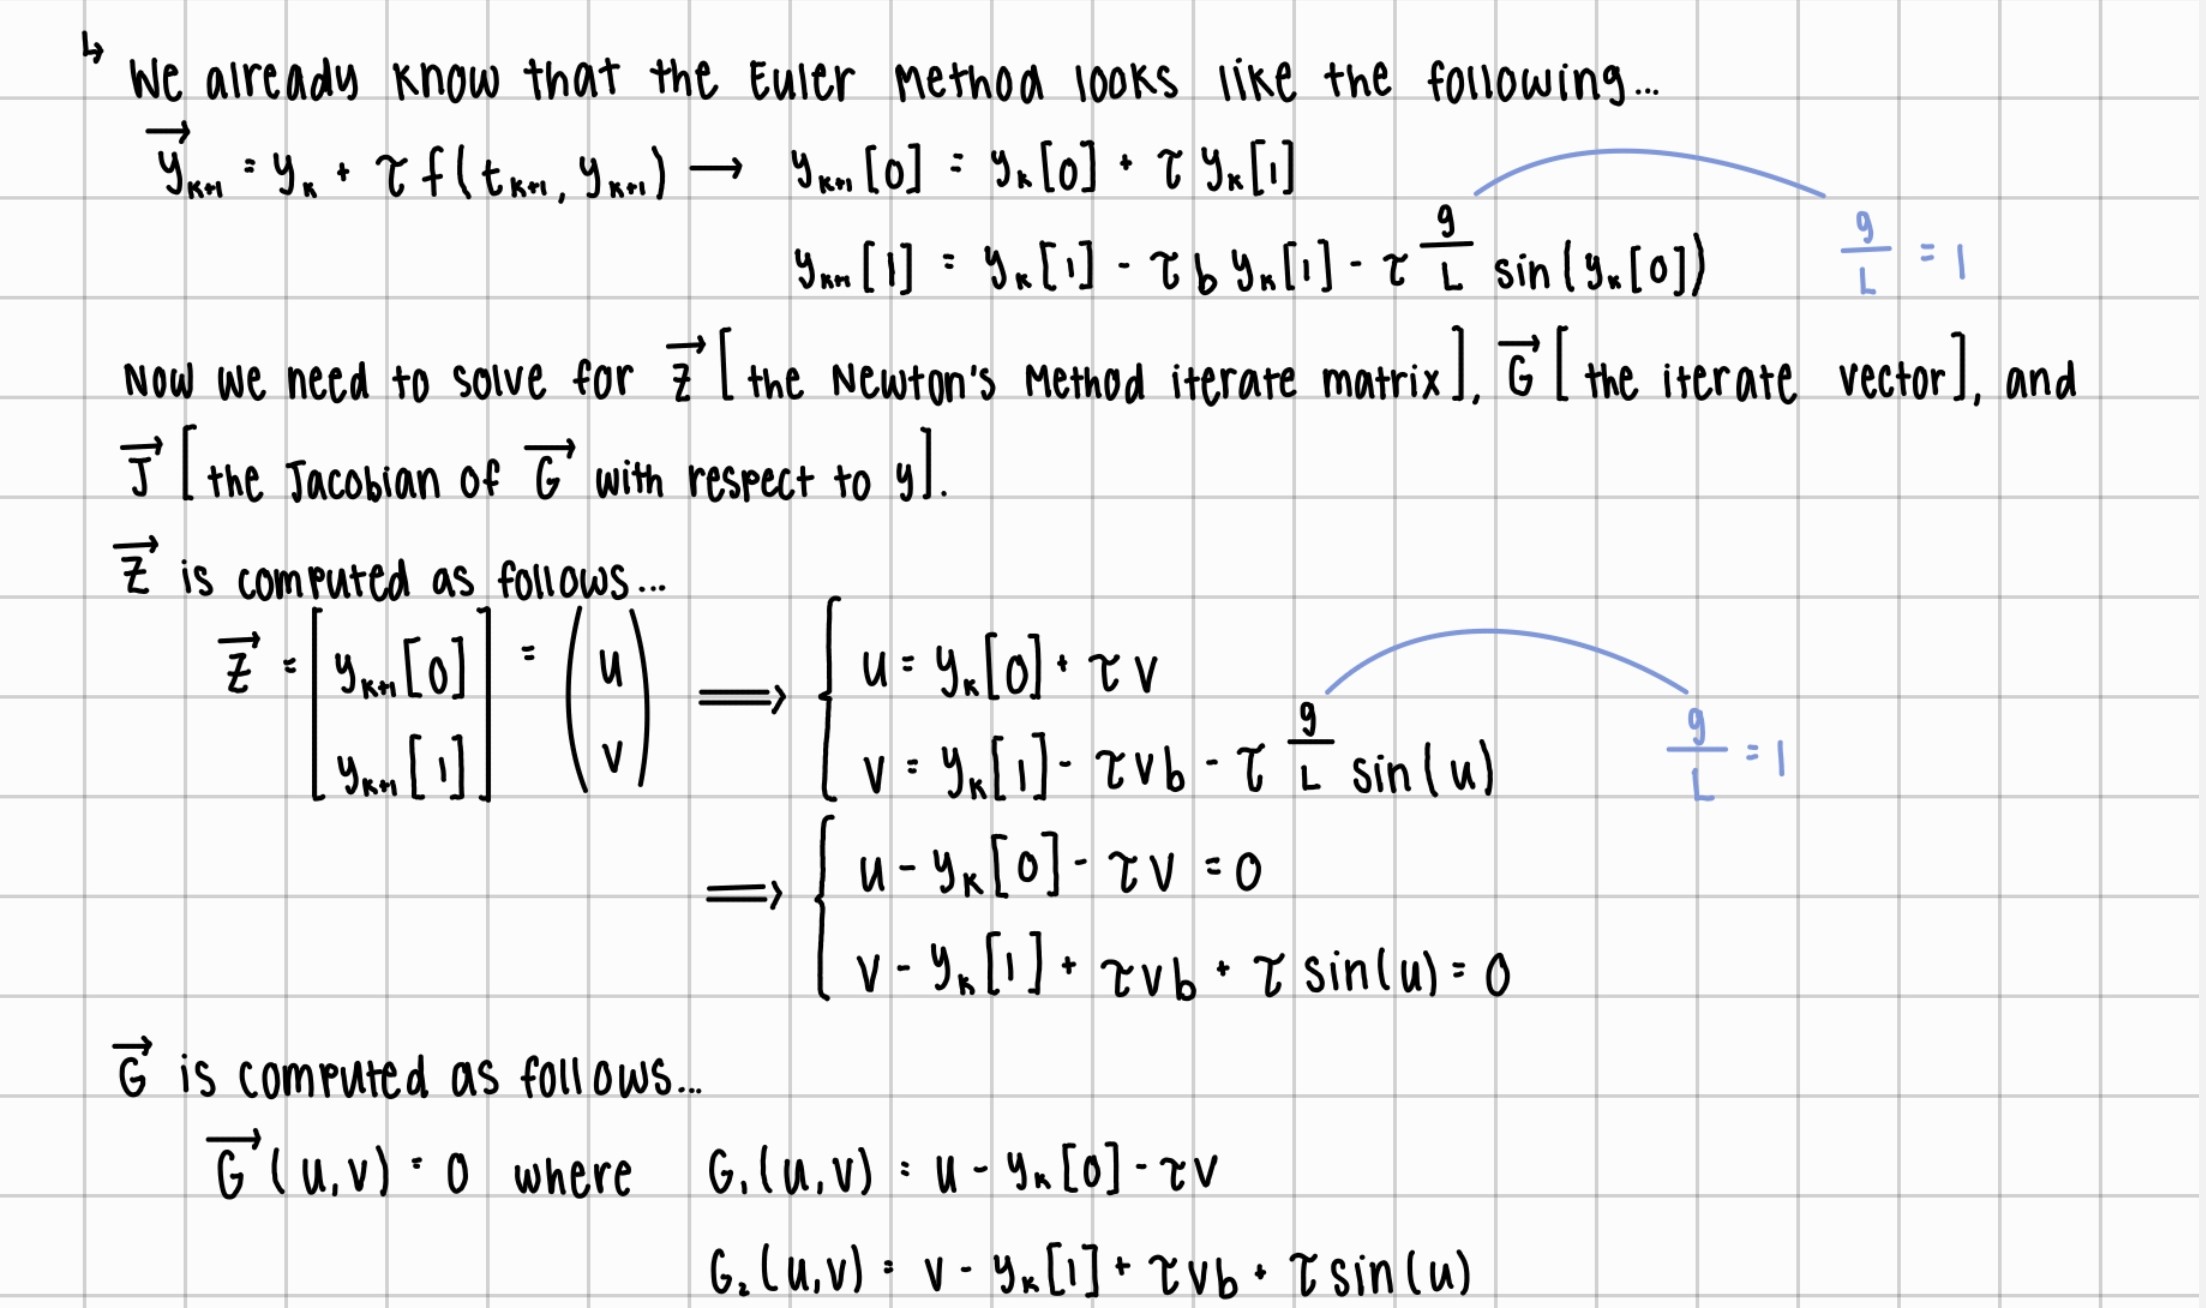 ↳ We already know that the Euler Method looks like the following...
y⃗ₖ₊₁ = yₖ + τ f(tₖ₊₁, yₖ₊₁) → yₖ₊₁[0] = yₖ[0] + τ yₖ[1]
yₖ₊₁[1] = yₖ[1] - τ b yₖ[1] - τ g/L sin(yₖ[0]) g/L = 1
Now we need to solve for Z⃗ [the Newton's Method iterate matrix], G⃗ [the iterate vector], and
J⃗ [the Jacobian of G⃗ with respect to y].
Z⃗ is computed as follows...
Z⃗ = [yₖ₊₁[0] yₖ₊₁[1]] = (u v) ⟹ { u = yₖ[0] + τ v
v = yₖ[1] - τvb - τ g/L sin(u) g/L = 1
⟹ { u - yₖ[0] - τv = 0
v - yₖ[1] + τvb + τ sin(u) = 0
G⃗ is computed as follows...
G⃗(u,v) = 0 where G₁(u,v) = u - yₖ[0] - τv
G₂(u,v) = v - yₖ[1] + τvb + τsin(u)